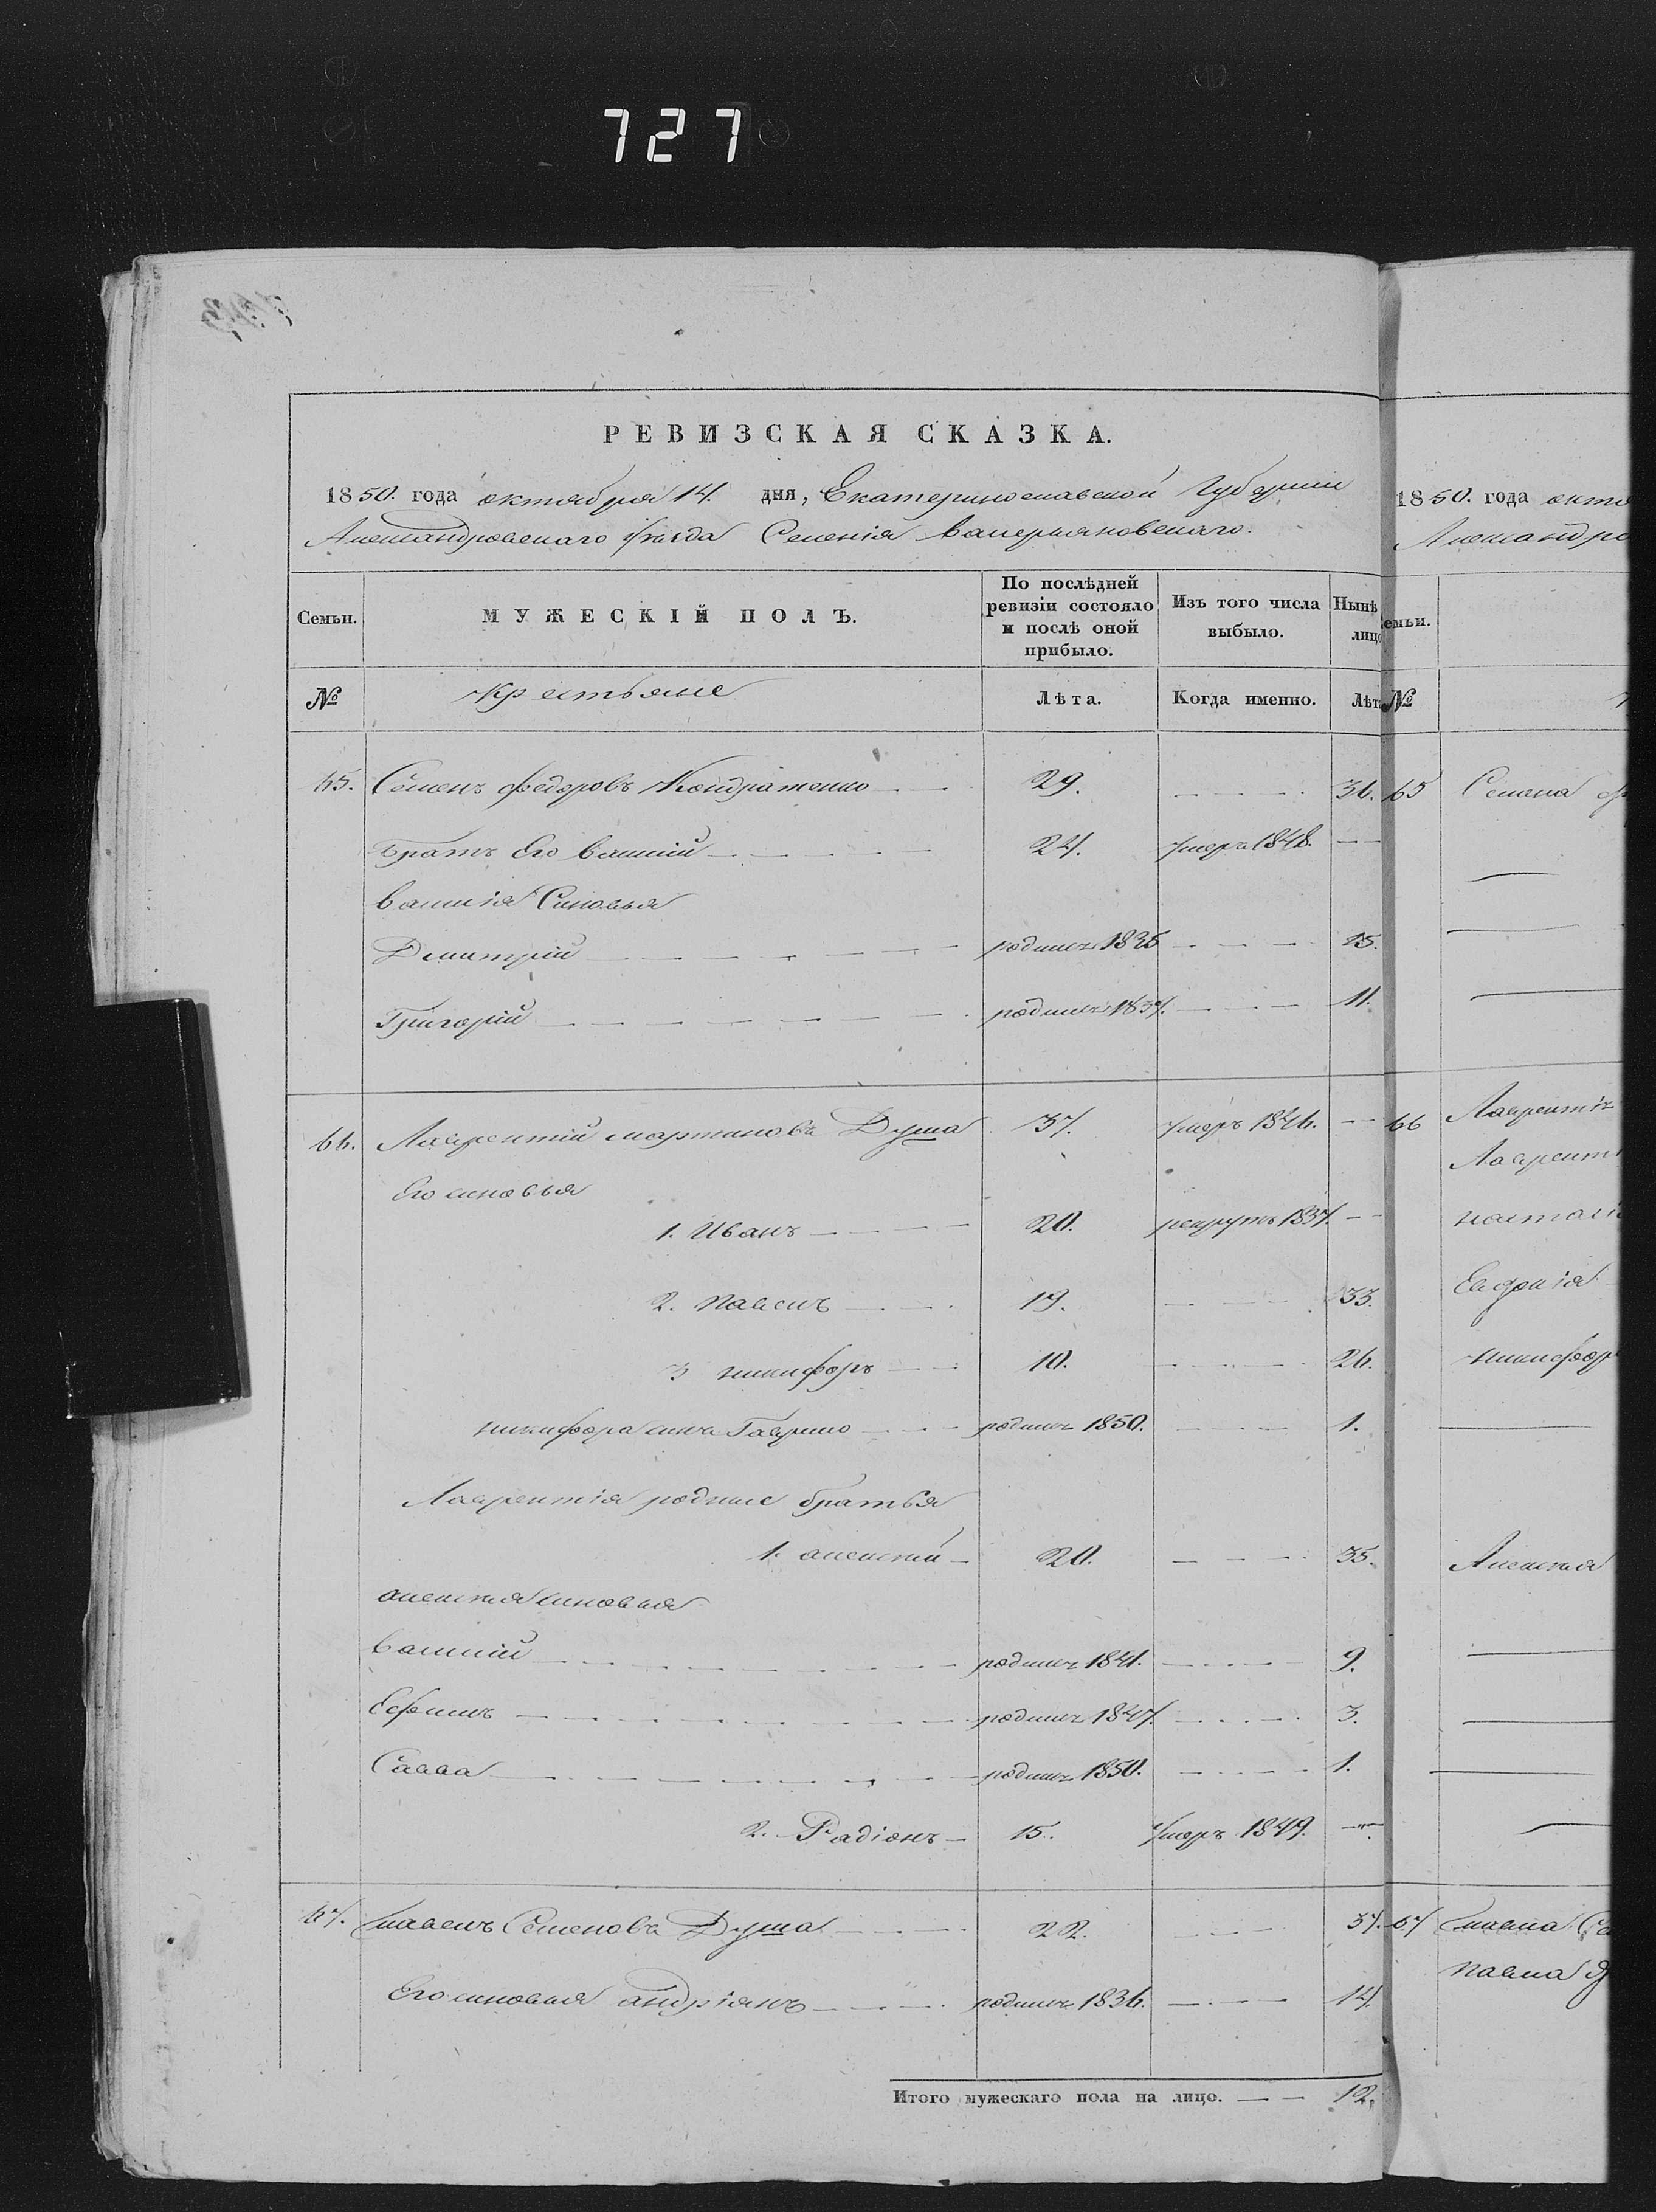 727
РЕВИЗСКАЯ СКАЗКА.
1850. года октября 14. дня, Екатеринославской Губерніи
Александровскаго Уезда Селенія Валерьяновскаго.
Семьи. МУЖЕСКІЙ ПОЛЪ. По послѣдней ревизіи состояло и послѣ оной прибыло. Изъ того числа выбыло. Нынѣ лицо
№ Крестьяне Лѣта. Когда именно. Лѣт
65. Семенъ Федоровъ Кондратенко 29. 
Братъ Его Василій 24. умеръ 1848.
Василія Синовья
Дмитрій родился 1835 15.
Григорій родился 11.
66. Лаврентій мартиновъ Душа 37. умеръ 1846.
Его синовья
1. Иванъ 20. рекрутъ 1837
2. Павелъ 19. 33.
3 никифоръ 10. 26.
никифора синъ Гаврило родился 1850. 1.
Лаврентія родные братья
1. алексѣй 20. 35.
алексѣя синовья
Василій родился 1841. 9.
Ефимъ родился 1847. 3.
Савва родился 1850. 1.
2. Радіонъ 15. умеръ 1849.
67. Павелъ Семеновъ Душа 22. 37.
Его синовья андріянъ родился 1836. 14.
Итого мужескаго пола на лицо. 12.
1850. года окто
Александро
емьи.
№
65 Семена
66 Лаврентія
Лаврентi
никифор
Алексѣя
67
Павла